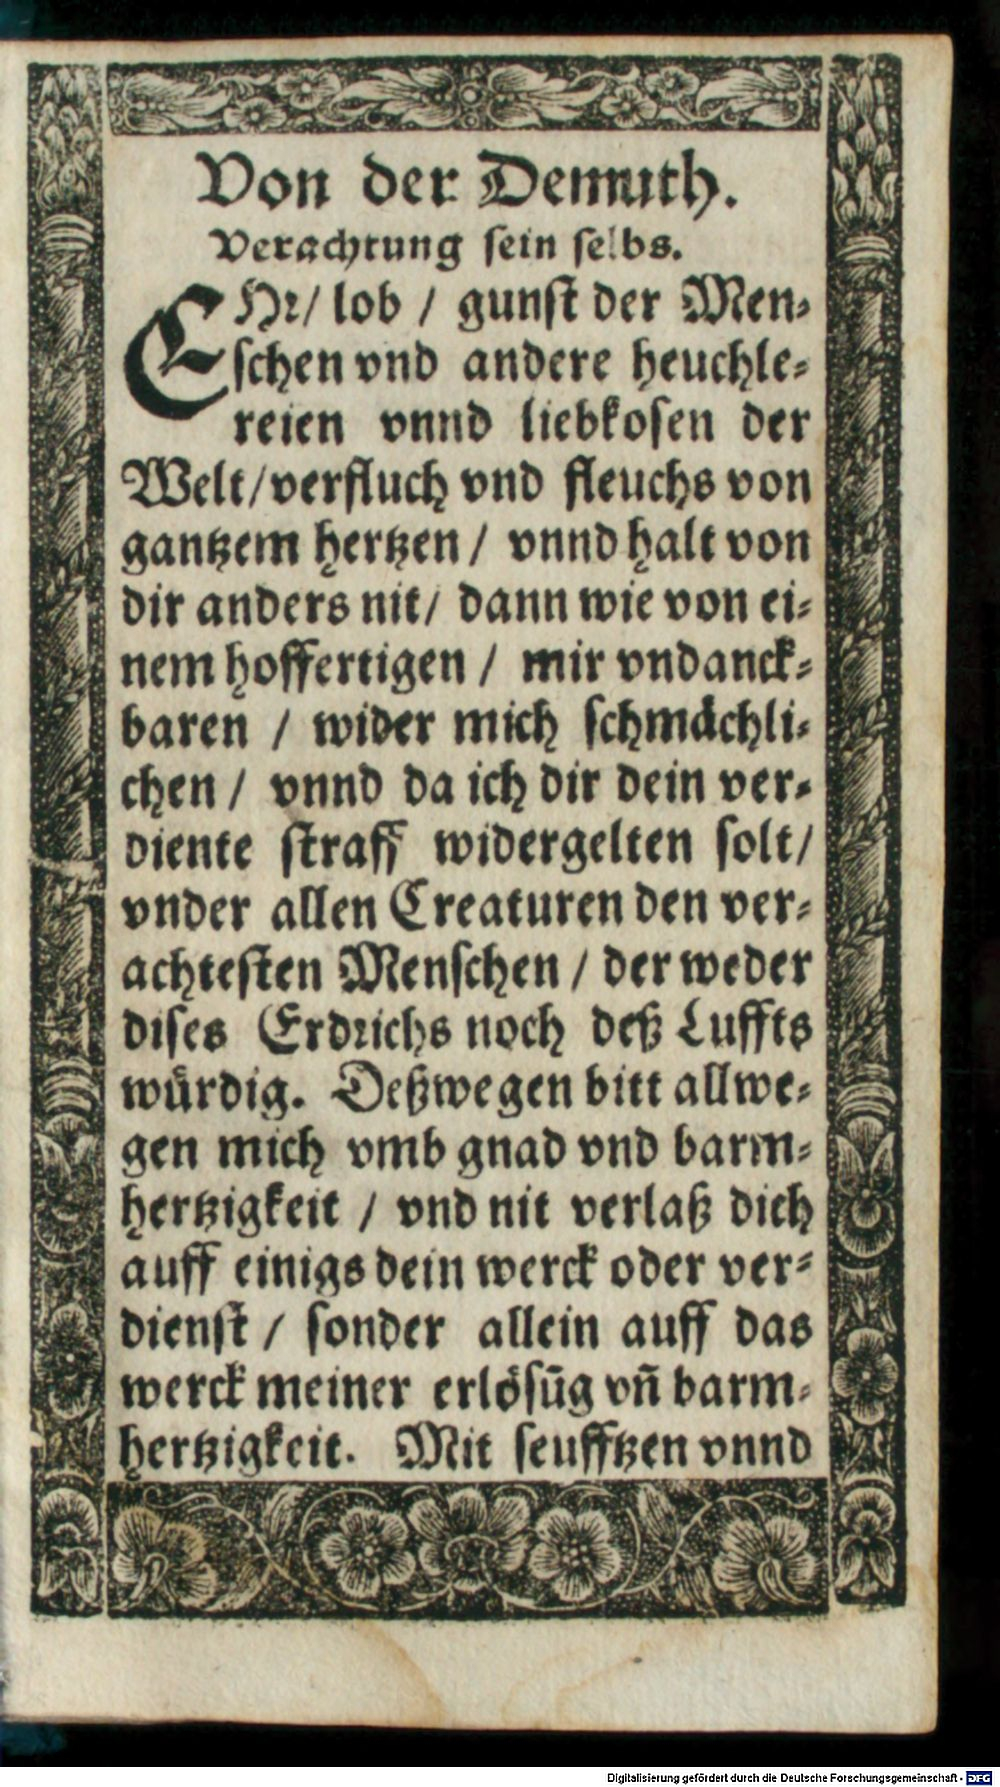 Von der Demuth.
Verachtung sein selbs.
EHr/ lob / gunst der Men-
schen vnd andere heuchle-
reien vnnd liebkosen der
Welt/verfluch vnd fleuchs von
gantzem hertzen / vnnd halt von
dir anders nit/ dann wie von ei-
nem hoffertigen / mir vndanck-
baren / wider mich schmächli-
chen / vnnd da ich dir dein ver-
diente straff widergelten solt/
vnder allen Creaturen den ver-
achtesten Menschen / der weder
dises Erdrichs noch deß Luffts
würdig. Deßwegen bitt allwe-
gen mich vmb gnad vnd barm-
hertzigkeit / vnd nit verlaß dich
auff einigs dein werck oder ver-
dienst / sonder allein auff das
werck meiner erlösūg vn̄ barm-
hertzigkeit. Mit seufftzen vnnd
Digitalisierung gefördert durch die Deutsche Forschungsgemeinschaft - DFG